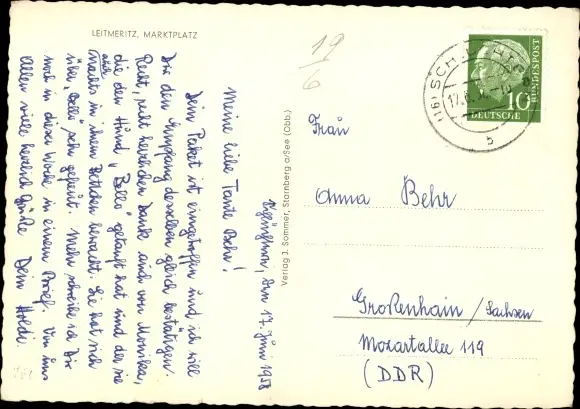 LEITMERITZ, MARKTPLATZ
den 17. Juni 1958
Meine liebe Tante Behr!
Dein Paket ist eingetroffen und ich will
Dir den Empfang desselben gleich bestätigen.
Recht, recht herzlichen Dank auch von Monika,
die den Hund „Bello" getauft hat und der sie
nachts in ihrem Bettchen bewacht. Sie hat sich
über „Bello" sehr gefreut. Mehr schreibe ich Dir
noch in dieser Woche in einem Brief. Von uns
Allen viele herzlich Grüße Dein Holdi.
Verlag J. Sommer, Starnberg a/See (Obb.)
19
6
(16) SCH
17.6.
b
10
DEUTSCHE
BUNDESPOST
Frau
Anna Behr
Großenhain / Sachsen
Mozartallee 119
(DDR)